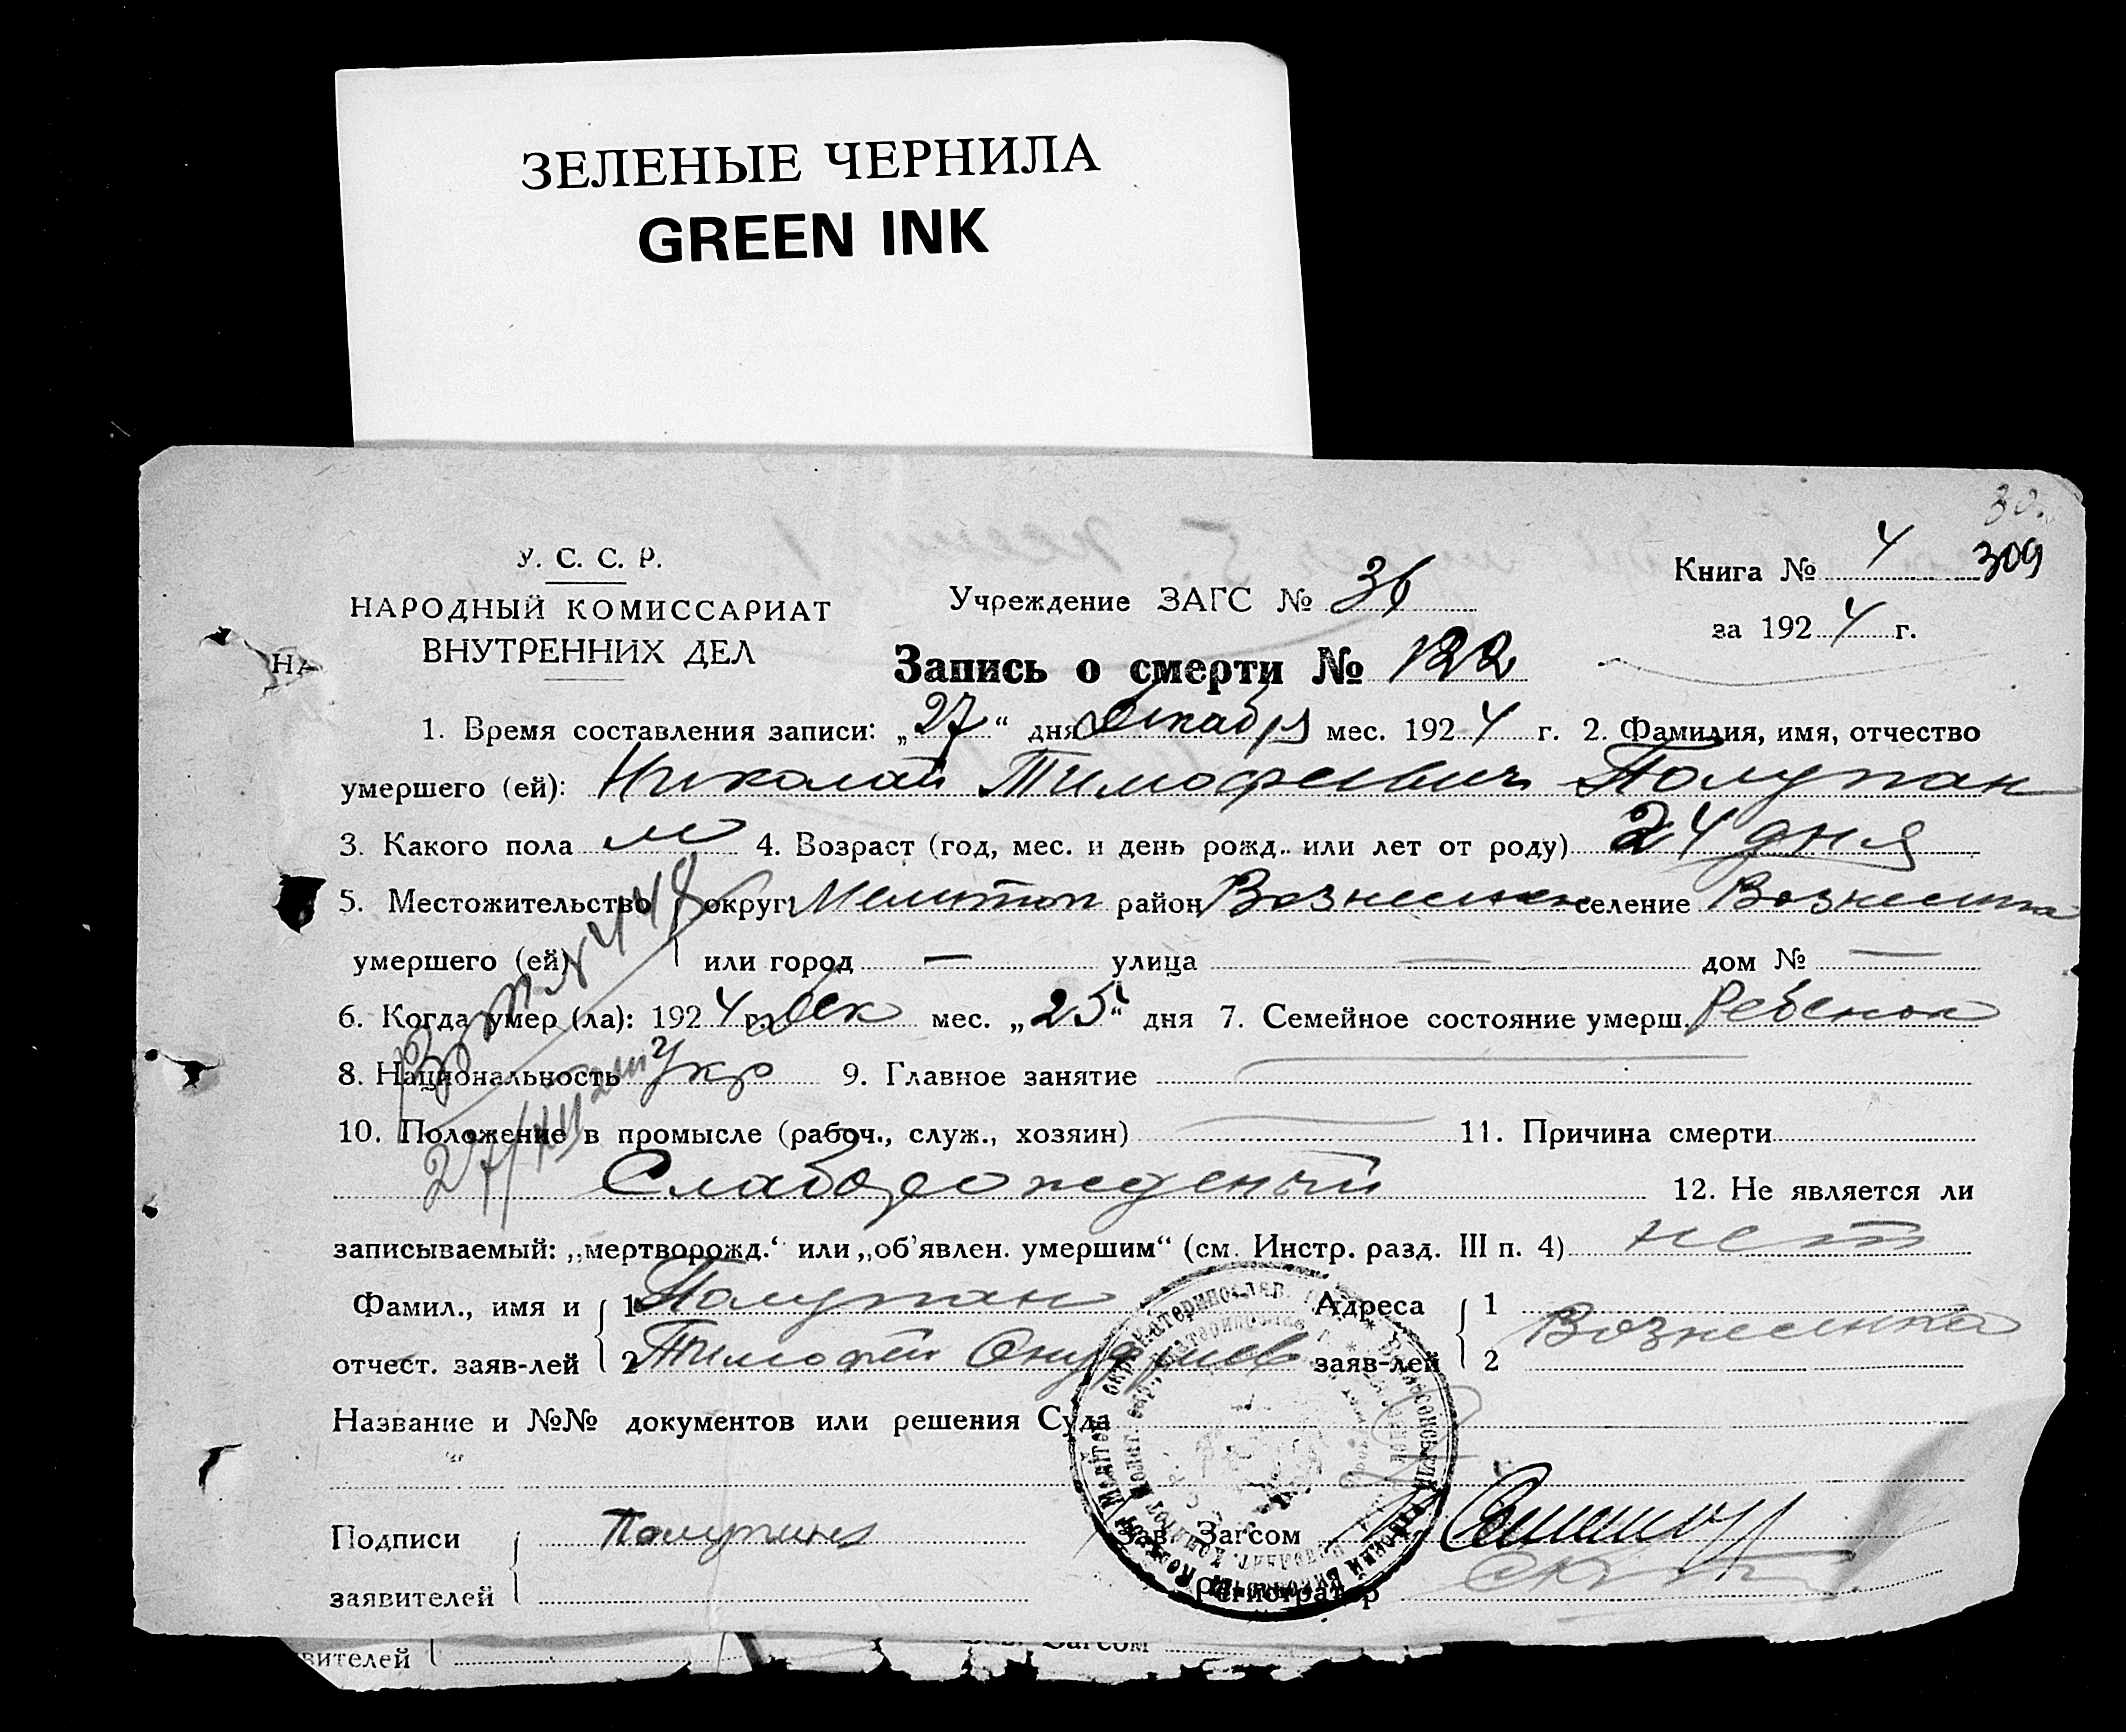 ЗЕЛЕНЫЕ ЧЕРНИЛА
GREEN INK
309
У. С. С. Р.
НАРОДНЫЙ КОМИССАРИАТ
ВНУТРЕННИХ ДЕЛ
НА
Учреждение ЗАГС № 36
Книга № 4
за 1924 г.
Запись о смерти № 122
1. Время составления записи: „27“ дня Декабря мес. 1924 г. 2. Фамилия, имя, отчество
умершего (ей): Николай Тимофеевич Полупан
3. Какого пола м 4. Возраст (год, мес. и день рожд. или лет от роду) 24 дня
5. Местожительство округ Мелитоп район Вознесенск селение Вознесенка
умершего (ей) или город — улица — дом № —
6. Когда умер (ла): 1924 г. Дек мес. „25“ дня 7. Семейное состояние умерш. Ребенок
8. Национальность Укр 9. Главное занятие
10. Положение в промысле (рабоч., служ., хозяин) 11. Причина смерти
Слаборожденый 12. Не является ли
записываемый: „мертворожд.“ или „об'явлен. умершим“ (см. Инстр. разд. III п. 4) нет
Фамил., имя и 1 Полупан Адреса 1
отчест. заяв-лей 2 Тимофей Онуфриев заяв-лей 2 Вознесенка
Название и №№ документов или решения Суда
Подписи Полупан Зав. Загсом
заявителей Регистратор
вителей Загсом